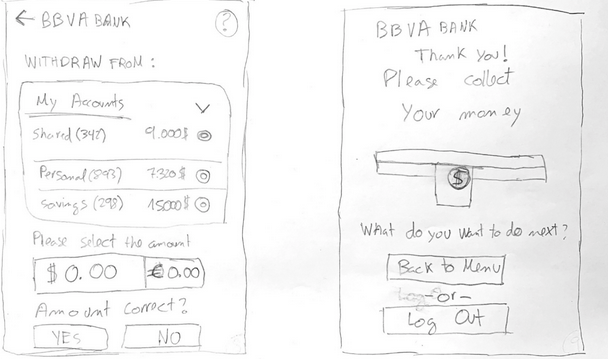 ← BBVA BANK ?
WITHDRAW FROM:
My Accounts
Shared (342) 9.000$
Personal (893) 7.320$
Savings (298) 15000$
Please select the amount
$ 0.00 € 0.00
Amount correct?
YES NO
BBVA BANK
Thank you!
Please collect
Your money
$
What do you want to do next?
Back to Menu
-or-
Log Out